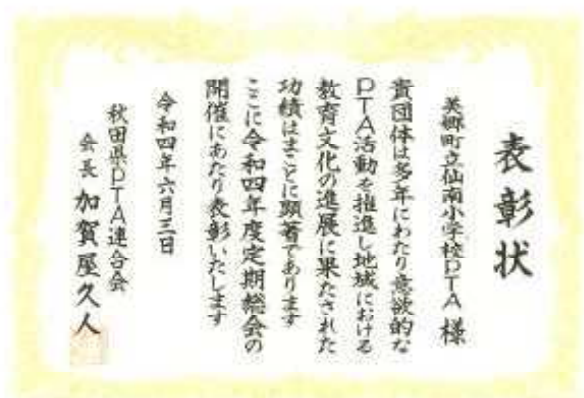 表彰状
美郷町立仙南小学校PTA 様
貴団体は多年にわたり意欲的な
PTA活動を推進し地域における
教育文化の進展に果たされた
功績はまことに顕著であります
ここに令和四年度定期総会の
開催にあたり表彰いたします
令和四年六月三日
秋田県PTA連合会
会長 加賀屋久人